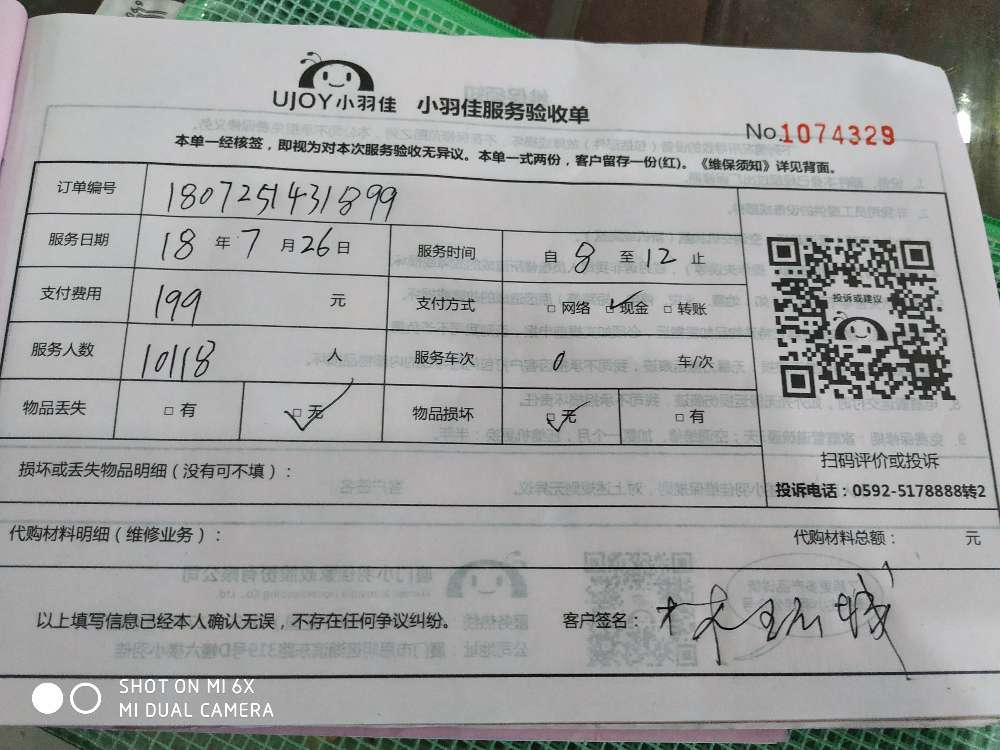 UJOY小羽佳 小羽佳服务验收单
No.1074329
本单一经核签，即视为对本次服务验收无异议。本单一式两份，客户留存一份(红)。《维保须知》详见背面。
订单编号 1807251431899
服务日期 18 年 7 月 26 日 服务时间 自 8 至 12 止
支付费用 199 元 支付方式 □ 网络 ☑ 现金 □ 转账
服务人数 10118 人 服务车次 0 车/次
物品丢失 □ 有 ☑ 无 物品损坏 ☑ 无 □ 有
投诉或建议
扫码评价或投诉
投诉电话：0592-5178888转2
损坏或丢失物品明细（没有可不填）：
代购材料明细（维修业务）： 代购材料总额： 元
以上填写信息已经本人确认无误，不存在任何争议纠纷。 客户签名：
SHOT ON MI 6X
MI DUAL CAMERA